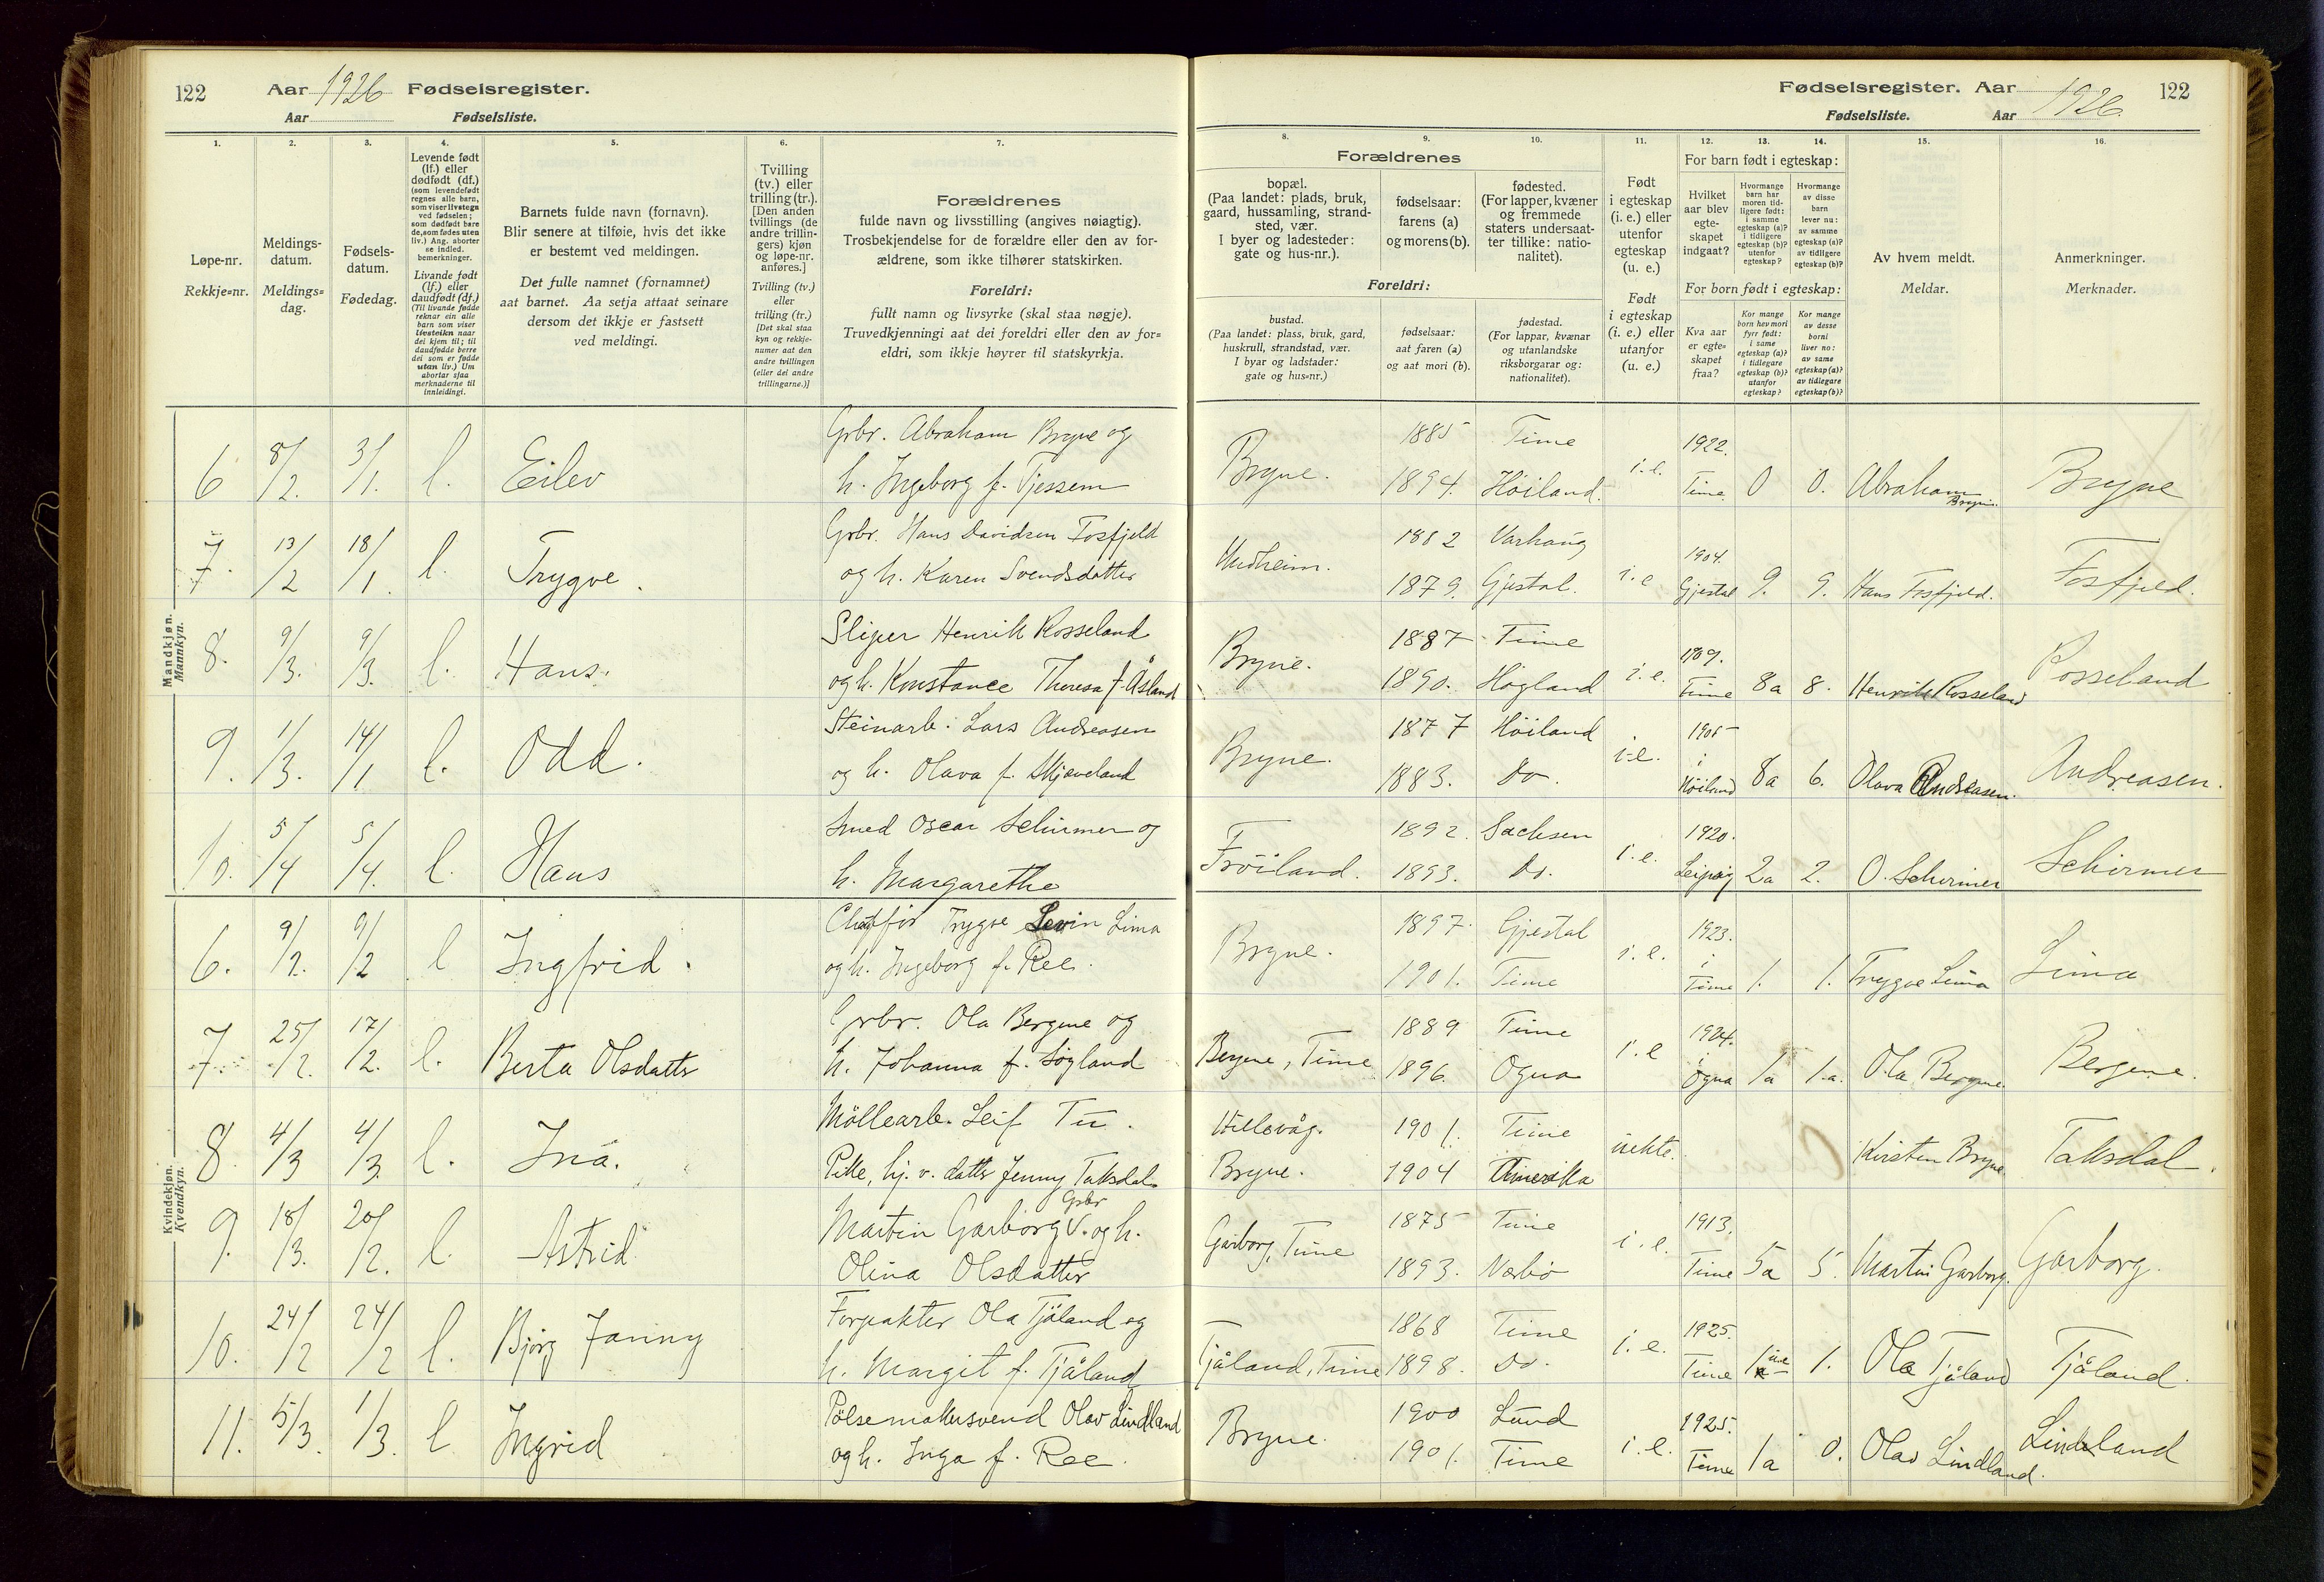 122 Aar 1926 Fødselsregister.
Aar Fødselsliste.
Fødselsregister. Aar 1926. 122
Fødselsliste. Aar
1. 2. 3. 4. 5. 6. 7.
8. 9. 10. 11. 12. 13. 14. 15. 16.
Løpe-nr.
Rekkje=nr.
Meldings-
datum.
Meldings=
dag.
Fødsels-
datum.
Fødedag.
Levende født
(lf.) eller
dødfødt (df.)
(som levendefødt
regnes alle barn,
som viser livstegn
ved fødselen;
som dødfødt bare
de, som fødes uten
liv.) Ang. aborter
se indled.
bemerkninger.
Livande født
(lf.) eller
daudfødt (df.)
(Til livande fødde
reknar ein alle
barn som viser
livsteikn naar
dei kjem til; til
daudfødde berre
dei som er fødde
utan liv.) Um
abortar sjaa
merknaderne til
innleidingi.
Barnets fulde navn (fornavn).
Blir senere at tilføie, hvis det ikke
er bestemt ved meldingen.
Det fulle namnet (fornamnet)
aat barnet. Aa setja attaat seinare
dersom det ikkje er fastsett
ved meldingi.
Tvilling
(tv.) eller
trilling (tr.).
[Den anden
tvillings (de
andre trillin-
gers) kjøn
og løpe-nr.
anføres.]
Tvilling (tv.)
eller
trilling (tr.)
[Det skal staa
kyn og rekkje-
numer aat den
andre tvillingen
(eller dei andre
trillingarne.)]
Forældrenes
fulde navn og livsstilling (angives nøiagtig).
Trosbekjendelse for de forældre eller den av for-
ældrene, som ikke tilhører statskirken.
Foreldri:
fullt namn og livsyrke (skal staa nøgje).
Truvedkjenningi aat dei foreldri eller den av for=
eldri, som ikkje høyrer til statskyrkja.
Forældrenes
bopæl.
(Paa landet: plads, bruk,
gaard, hussamling, strand-
sted, vær.
I byer og ladesteder:
gate og hus-nr.).
fødselsaar:
farens (a)
og morens (b).
fødested.
(For lapper, kvæner
og fremmede
staters undersaat-
ter tillike: natio-
nalitet).
Foreldri:
bustad.
(Paa landet: plass, bruk, gard,
huskrull, strandstad, vær.
I byar og ladstader:
gate og hus=nr.)
fødselsaar:
aat faren (a)
og aat mori (b).
fødestad.
(For lappar, kvænar
og utanlandske
riksborgarar og:
nationalitet).
Født
i egteskap
(i. e.) eller
utenfor
egteskap
(u. e.)
Født
i egteskap
(i. e.) eller
utanfor
(u. e.)
For barn født i egteskap:
Hvilket
aar blev
egte-
skapet
indgaat?
Hvormange
barn har
moren tid-
ligere født:
i samme
egteskap (a)?
i tidligere
egteskap (b)?
utenfor
egteskap?
Hvormange
av disse
barn
lever nu:
av samme
egteskap (a)?
av tidligere
egteskap (b)?
For born født i egteskap:
Kva aar
er egte=
skapet
fraa?
Kor mange
born hev mori
fyrr født:
i same
egteskap (a)?
i tidlegare
egteskap (b)?
utanfor
egteskap?
Kor mange
av desse
borni
liver no:
av same
egteskap (a)?
av tidlegare
egteskap (b)?
Av hvem meldt.
Meldar.
Anmerkninger.
Merknader.
Mandkjøn.
Mannkyn.
6 8/2. 3/1. l. Eilev Grbr. Abraham Bryne og
h. Ingeborg f. Tjessem
Bryne. 1885 Time i.e. 1922.
1894. Höiland. Time 0 0. Abraham Bryne. Bryne
7. 13/2 18/1. l. Trygve. Grbr. Hans Davidsen Fosfjeld
og h. Karen Svendsdatter
Undheim. 1882 Varhaug i.e 1904.
1879. Gjestal. Gjestal 9. 9. Hans Fosfjeld. Fosfjeld.
8. 9/3. 9/3. l. Hans. Sliper Henrik Rosseland
og h. Konstance Theresa f. Åsland
Bryne. 1887 Time i.e. 1909.
1890. Høgland Time 8a 8. Henrik Rosseland Rosseland
9. 1/3. 14/1 l. Odd. Steinarb. Lars Andreasen
og h. Olava f. Skjæveland
Bryne. 1877 Höiland i.e. 1905 i
1883. Do. Höiland 8a 6. Olava Andreasen. Andreasen.
10. 5/4 5/4. l. Hans Smed Oscar Schirmer og
h. Margarethe
Fröiland. 1892. Sachsen i.e. 1920.
1893. Do. Leipzig 2a 2. O. Schirmer Schirmer
Kvindekjøn.
Kvendkyn.
6. 9/2. 9/2 l Ingfrid. Chaffør Trygve Levin Lima
og h. Ingeborg f. Ree.
Bryne. 1897. Gjestal i.e. 1923. i
1901. Time Time 1. 1. Trygve Lima Lima
7. 25/2. 17/2. l. Berta Olsdatter Grbr. Ola Bergene og
h. Johanna f. Søgland
Bergene, Time 1889 Time i.e 1924. i
1896. Ogna Ogna 1a 1.a. Ola Bergene. Bergene.
8. 4/3 4/3. l. Ina. Möllearb. Leif Tu.
Pike, hj. v. datter Jenny Taksdal
Hillevåg. 1901. Time uekte.
Bryne. 1904 Amerika Kirsten Bryne Taksdal.
9. 18/3. 20/2. l. Astrid Martin Garborg Grbr V. og h.
Olina Olsdatter
Garborg, Time 1875 Time i.e. 1913.
1893. Nærbø Time 5a 5. Martin Garborg. Garborg.
10. 24/2 24/2 l. Bjørg Janny Forpakter Ola Tjåland og
h. Margit f. Tjåland
Tjåland, Time 1868 Time i.e. 1925.
1898. Do. Time 1 u.e 1. Ola Tjåland Tjåland.
11. 5/3. 1/3. l Ingrid Pölsemakersvend Olav Lindland
og h. Inga f. Ree.
Bryne. 1900 Lund i.e. 1925.
1901. Time Time 1a 0. Olav Lindland. Lindland